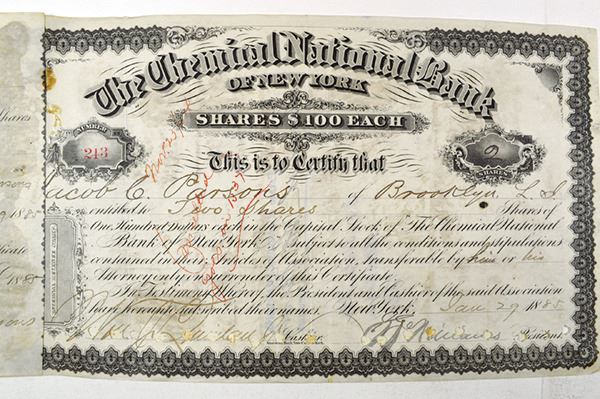 The Chemical National Bank
OF NEW YORK
SHARES $100 EACH
NUMBER
213
2
This is to Certify that
Jacob C. Parsons of Brooklyn L. I.
entitled to Two Shares Shares of
One Hundred Dollars each in the Capital Stock of The Chemical National
Bank of New York, subject to all the conditions and stipulations
contained in the Articles of Association, transferable by him or his
Attorney only on surrender of this Certificate.
In Testimony Whereof, the President and Cashier of the said Association
have hereunto subscribed their names. New York, Jan 29 1885
Cashier President
Shares
1885
1885